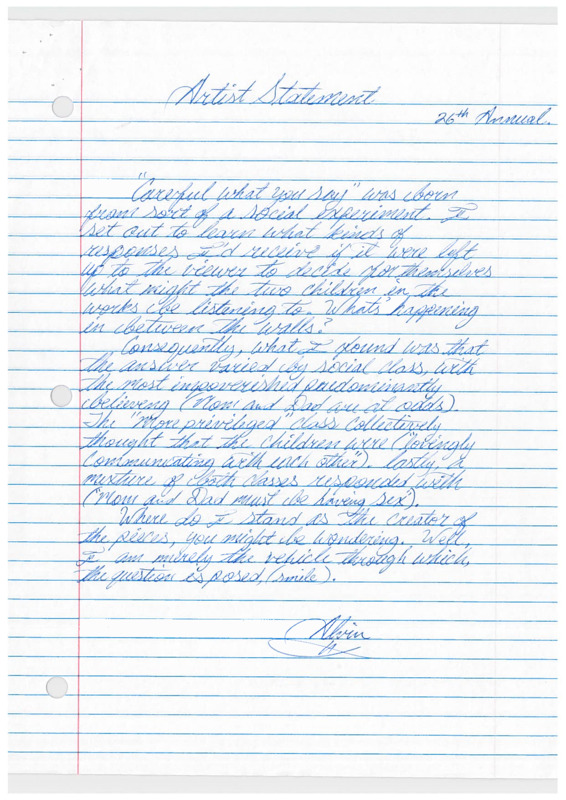 Artist Statement
26th Annual.
"Careful what you say" was born
from sort of a social experiment. I
set out to learn what kinds of
responses I'd receive if it were left
up to the viewer to decide for themselves
what might the two children in the
works be listening to. What's happening
in between the walls?
Consequently, what I found was that
the answer varied by social class, with
the most impoverished predominantly
believing (Mom and Dad are at odds).
The "more priviliged" class collectively
thought that the children were ("lovingly
communicating with each other"). Lastly, a
mixture of both classes responded with
("Mom and Dad must be having sex").
Where do I stand as the creator of
the pieces, you might be wondering. Well,
I am merely the vehicle through which,
the question is posed, (smile).
Alvin